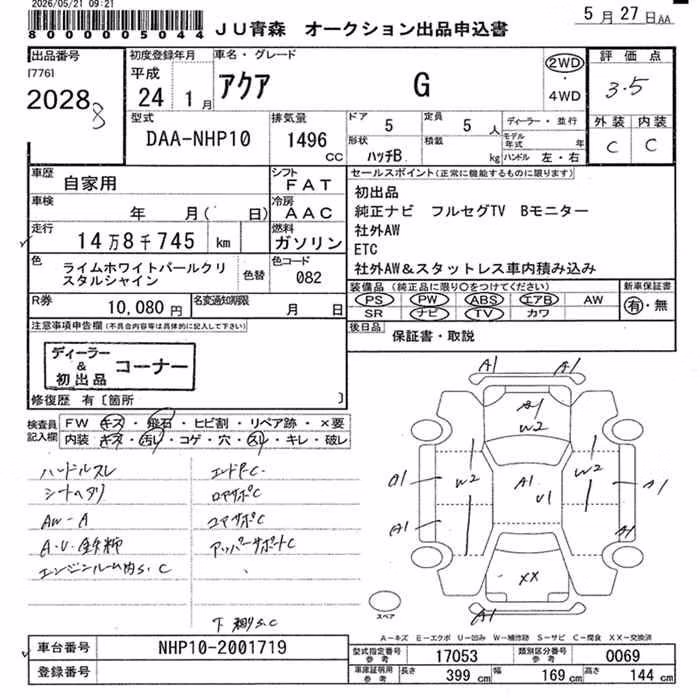 2026/05/21 09:21
8000005044
JU青森 オークション出品申込書
5月27日AA
出品番号
[776]
2028
8
初度登録年月
平成
24 1月
車名・グレード
アクア G
2WD
・
4WD
評価点
3.5
外装 内装
C C
型式
DAA-NHP10
排気量
1496
CC
ドア
5
定員
5人
形状
ハッチB
積載
kg
ディーラー・並行
モデル年式 年
ハンドル 左・右
車歴
自家用
シフト
FAT
車検
年 月( 日)
冷房
AAC
走行
14万8千745 km
燃料
ガソリン
色
ライムホワイトパールクリスタルシャイン
色替
色コード
082
R券
10,080円
名変通知期限
月 日
セールスポイント(正常に機能するものに限ります)
初出品
純正ナビ フルセグTV Bモニター
社外AW
ETC
社外AW&スタットレス車内積み込み
装備品(純正品に限り○をつけてください)
PS PW ABS エアB AW
SR ナビ TV カワ
新車保証書
有・無
後日品
保証書・取説
注意事項申告欄(不具合内容等は具体的に記入して下さい)
ディーラー
&
初出品
コーナー
修復歴 有〔箇所 〕
検査員記入欄
FW キズ・飛石・ヒビ割・リペア跡・×要
内装 キズ・汚レ・コゲ・穴・スレ・キレ・破レ
ハンドルスレ
シートヘタリ
AW-A
A.U.余料
エンジンルーム内S.C
エンドP.C.
ロアサポC
コアサポC
アッパーサポートC
下廻りS.C
A1 A1
A1
W2
A1 W2 A1 U1 W2 A1
A1 A1
XX
A1
スペア
A-キズ E-エクボ U-凹み W-補修跡 S-サビ C-腐食 XX-交換済
車台番号
NHP10-2001719
登録番号
型式指定番号
参考
17053
類別区分番号
参考
0069
車庫証明用
参考
長さ
399 cm
幅
169 cm
高さ
144 cm